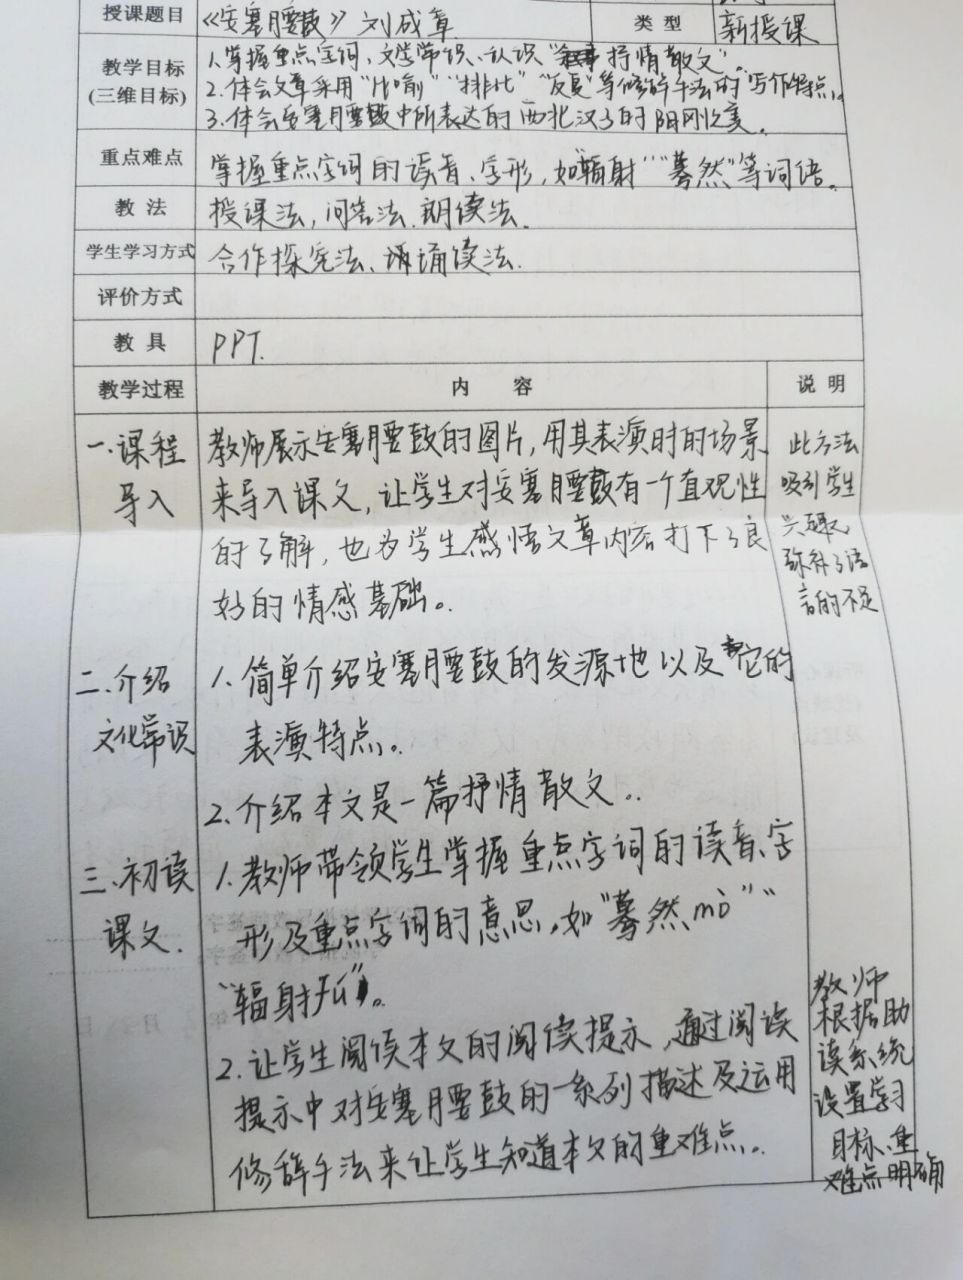 授课题目 《安塞腰鼓》 刘成章 类型 新授课
教学目标 1.掌握重点字词、文学常识、认识“抒情散文”。
(三维目标) 2.体会文章采用“比喻”“排比”“反复”等修辞手法的写作特点。
3.体会安塞腰鼓中所表达的西北汉子的阳刚之美。
重点难点 掌握重点字词的读音、字形,如“辐射”“蓦然”等词语。
教法 授课法,问答法.朗读法.
学生学习方式 合作探究法、诵读法.
评价方式
教具 PPT.
教学过程 内容 说明
一.课程 教师展示安塞腰鼓的图片,用其表演时的场景 此方法
导入 来导入课文,让学生对安塞腰鼓有一个直观性 吸引学生
的了解,也为学生感悟文章内容打下了良 兴趣
好的情感基础。 弥补了语
言的不足
二.介绍 1.简单介绍安塞腰鼓的发源地以及它的
文化常识 表演特点。
2.介绍本文是一篇抒情散文。
三.初读 1.教师带领学生掌握重点字词的读音.字
课文. 形及重点字词的意思,如“蓦然mò”“
“辐射fú”。
2.让学生阅读本文的阅读提示,通过阅读
提示中对安塞腰鼓的一系列描述及运用
修辞手法来让学生知道本文的重难点。
教师
根据助
读系统
设置学习
目标、重
难点明确